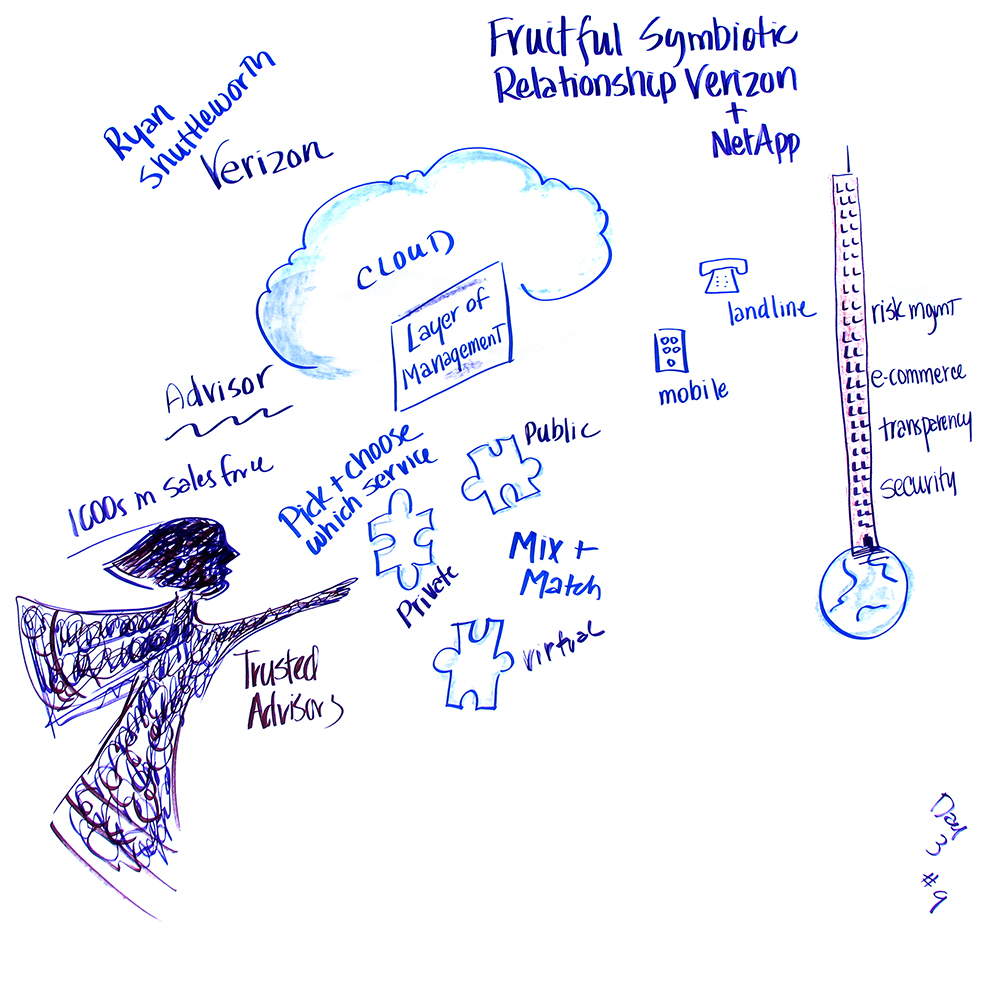 Fruitful Symbiotic
Relationship Verizon
+
NetApp
Ryan
Shuttleworth
Verizon
CLOUD
Layer of
Management
landline
mobile
risk mgmt
e-commerce
transparency
security
Advisor
1000s in sales force
Pick + choose
which service
Public
Private
Mix +
Match
virtual
Trusted
Advisors
Day
3
#9